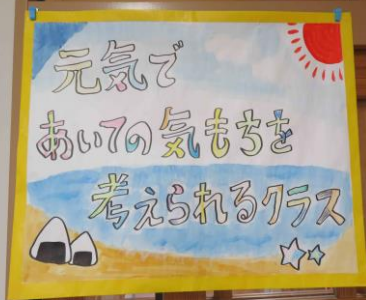 元気で
あいての気もちを
考えられるクラス